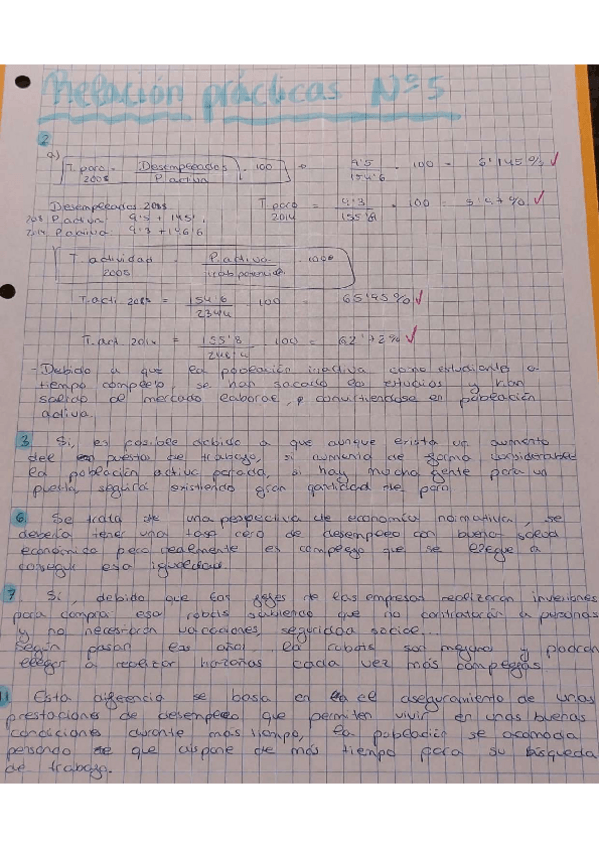 Relación prácticas Nº5
2
a) T. paro 2005 = Desempleados / P. activa · 100 → 9'5 / 154'6 · 100 = 6'145% ✓
Desempleados 2005 T. paro 2014 = 9'3 / 155'8 · 100 = ✓
P. activa: 9'5 + 145'1
P. activa: 9'3 + 146'6
T. actividad 2005 = P. activa / · 100
T. acti. 2005 = 154'6 / 234'4 · 100 = 65'95% ✓
T. act 2014 = 155'8 / 248'4 · 100 = 62'72% ✓
- Debido a que la población inactiva como estudiante a
tiempo completo, se han sacado los estudios y han
salido al mercado laboral, convirtiendose en población
activa.
3 Si, es posible debido a que aunque exista un aumento
del puestos de trabajo, si aumenta de forma considerable
la población activa parada, si hay mucha gente para un
puesto, seguirá existiendo gran cantidad de paro
6 Se trata de una perspectiva de economía normativa, se
debería tener una tasa cero de desempleo con buena salud
económica pero realmente es complejo que se llegue a
conseguir esa igualdad.
7 Si, debido que los jefes de las empresas realizaran inversiones
para comprar esos robots sabiendo que no contratarán a personas
y no necesitarán vacaciones, seguridad social...
Según pasan los años, los robots son mejores y podrán
llegar a realizar hazañas cada vez más complejas.
11 Esta diferencia se basa en el aseguramiento de unas
prestaciones de desempleo que permiten vivir en unas buenas
condiciones durante más tiempo, la población se acomoda
pensando de que dispone de más tiempo para su búsqueda
de trabajo.